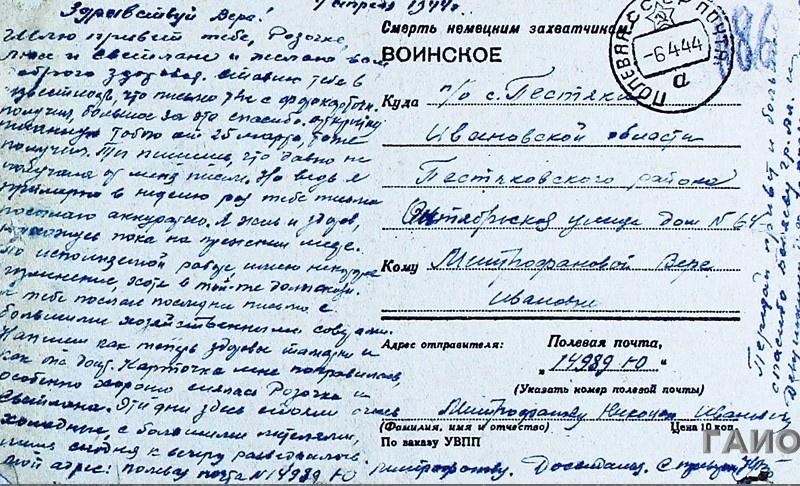 7 апреля 1944г.
Здравствуй Вера!
Шлю привет тебе, Розочке,
и Светлане и желаю вам
доброго здоровья. Ставлю тебя в
известность, что письмо твое с фотокарточк
получил, большое за это спасибо. открытку
тобою от 25 марта, тоже
получил. Ты пишешь, что давно не
получала от меня писем. Но ведь я
примерно в неделю раз тебе письма
посылаю аккуратно. Я жив и здоров,
нахожусь пока на прежнем месте.
По исполняемой работе, имею некоторое
в той-же должности.
Я тебе послал последнее письмо с
большими хозяйственными советами.
Напиши как теперь здоровье мамаши и
как она дома. Карточка мне понравилась,
особенно хорошо снялась Розочка и
Светлана. Эти дни здесь стояли очень
холодные, с большими метелями,
сегодня к вечеру
мой адрес: полевая почта N 14989 Ю Митрофанову. До свидания. С приветом
Смерть немецким захватчикам
ВОИНСКОЕ
ПОЛЕВАЯ ПОЧТА
СССР
-6.4.44
а
86
Куда п/о с. Пестяки
Ивановской области
Пестяковского района
Октябрьская улица дом N 64
Кому Митрофановой Вере
Ивановне
Адрес отправителя: Полевая почта,
„ 14989 Ю "
(Указать номер полевой почты)
Митрофанову Николаю Ивановичу
(Фамилия, имя и отчество) Цена 10 коп.
По заказу УВПП
Передай привет и большое
спасибо
ГАИО